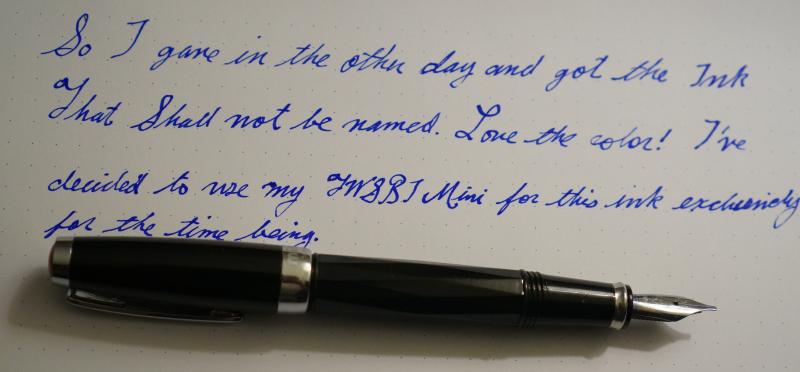 So I gave in the other day and got the Ink
That Shall not be named. Love the color! I've
decided to use my TWSBI Mini for this ink exclusively
for the time being.